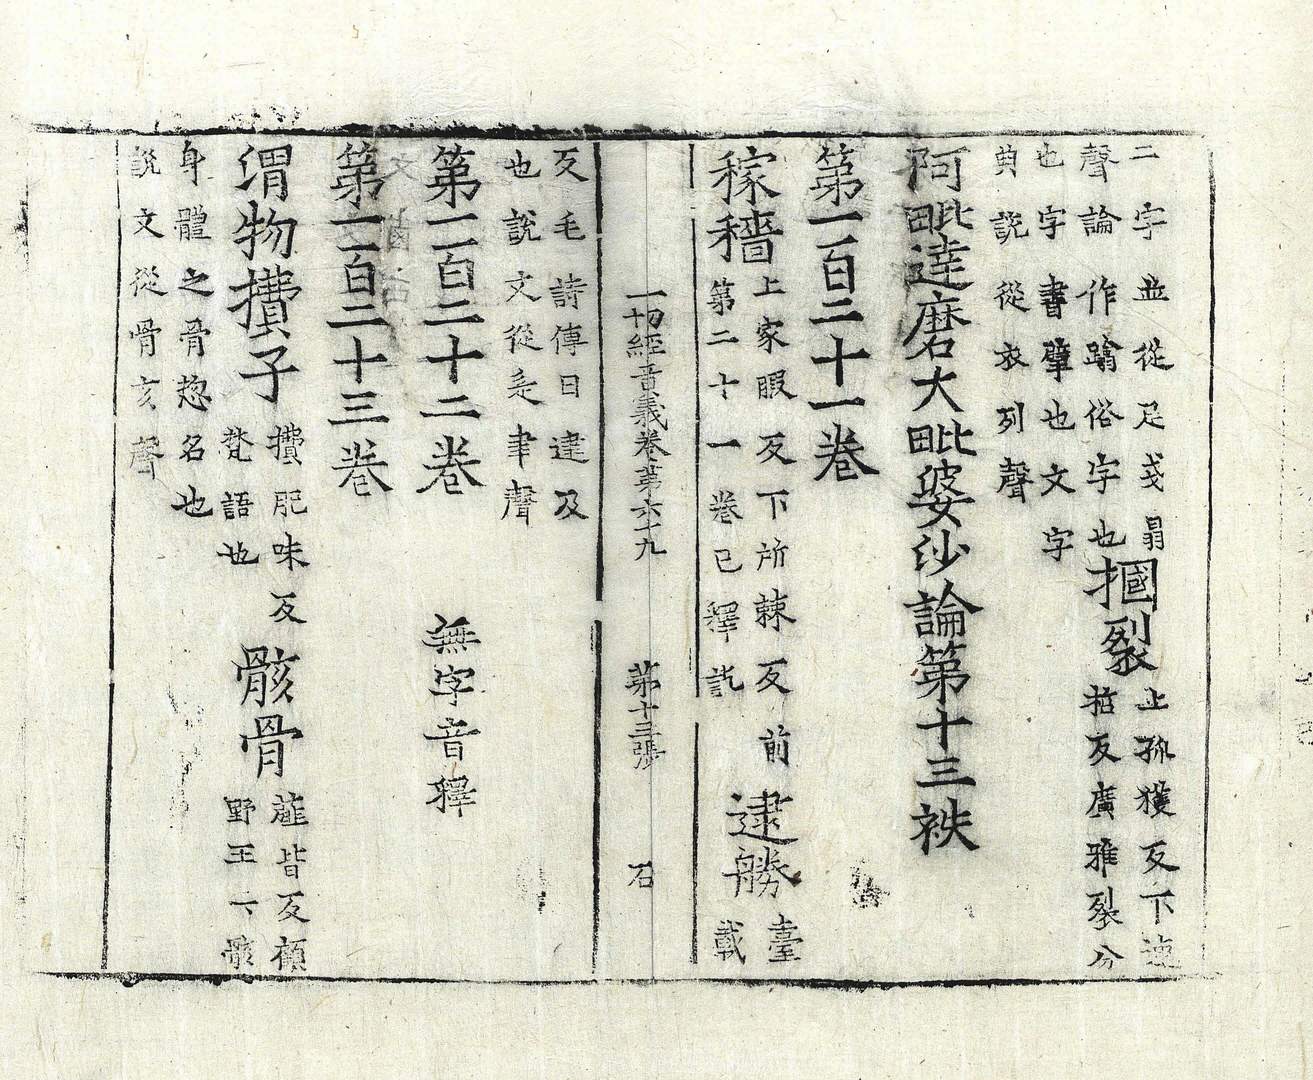 二字並從足戔
聲論作踰俗字也
摑裂
上孤獲反下連
哲反廣雅裂分
也字書擘也文字
典說從衣列聲
阿毗達磨大毗婆沙論第十三袟
第一百二十一卷
稼穡
上家暇反下所棘反前
第二十一卷已釋訖
逮勝
臺
載
一切經音義卷第六十九 第十三張 石
反毛詩傳曰逮及
也說文從辵聿聲
第一百二十二卷 無字音釋
第一百二十三卷
渭物子
肥味反
梵語也
骸骨
皆反顧
野王云骸
身體之骨惣名也
說文從骨亥聲